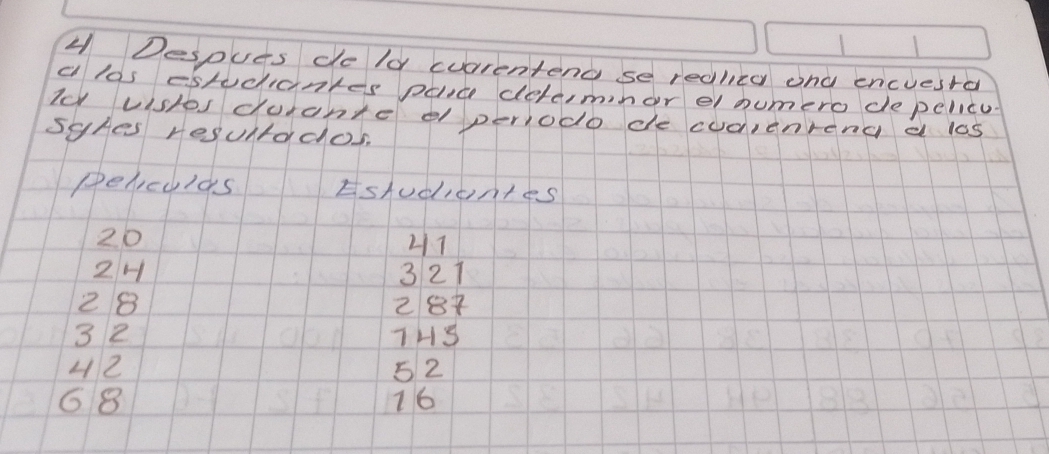 4 Después de la cuarentena se realica una encuesta
a los estudiantes para determinar el numero de pelicu-
las vistas durante el periodo de cuarentena a los
sgtes resultados.
peliculas Estudiantes
20 41
24 321
28 287
32 145
42 52
68 16